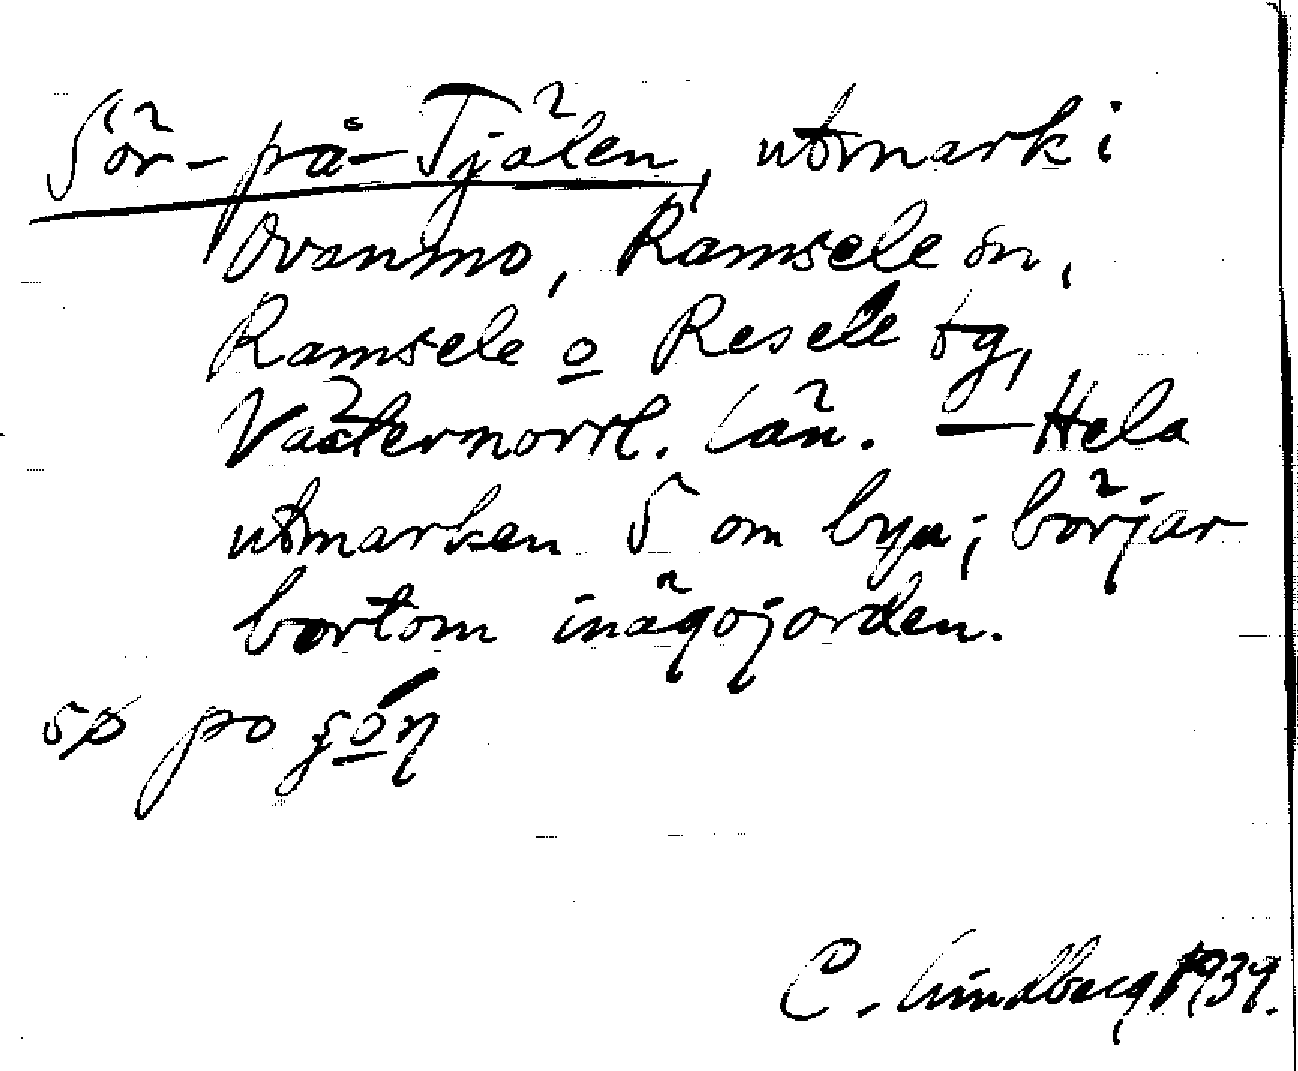 Sör-på-Tjälen, utmark i
Ovanmo, Ramsele sn,
Ramsele o Resele tg,
Västernorrl. län. — Hela
utmarken S om byn; börjar
bortom inägojorden.
sø po
C. Lindberg 1939.